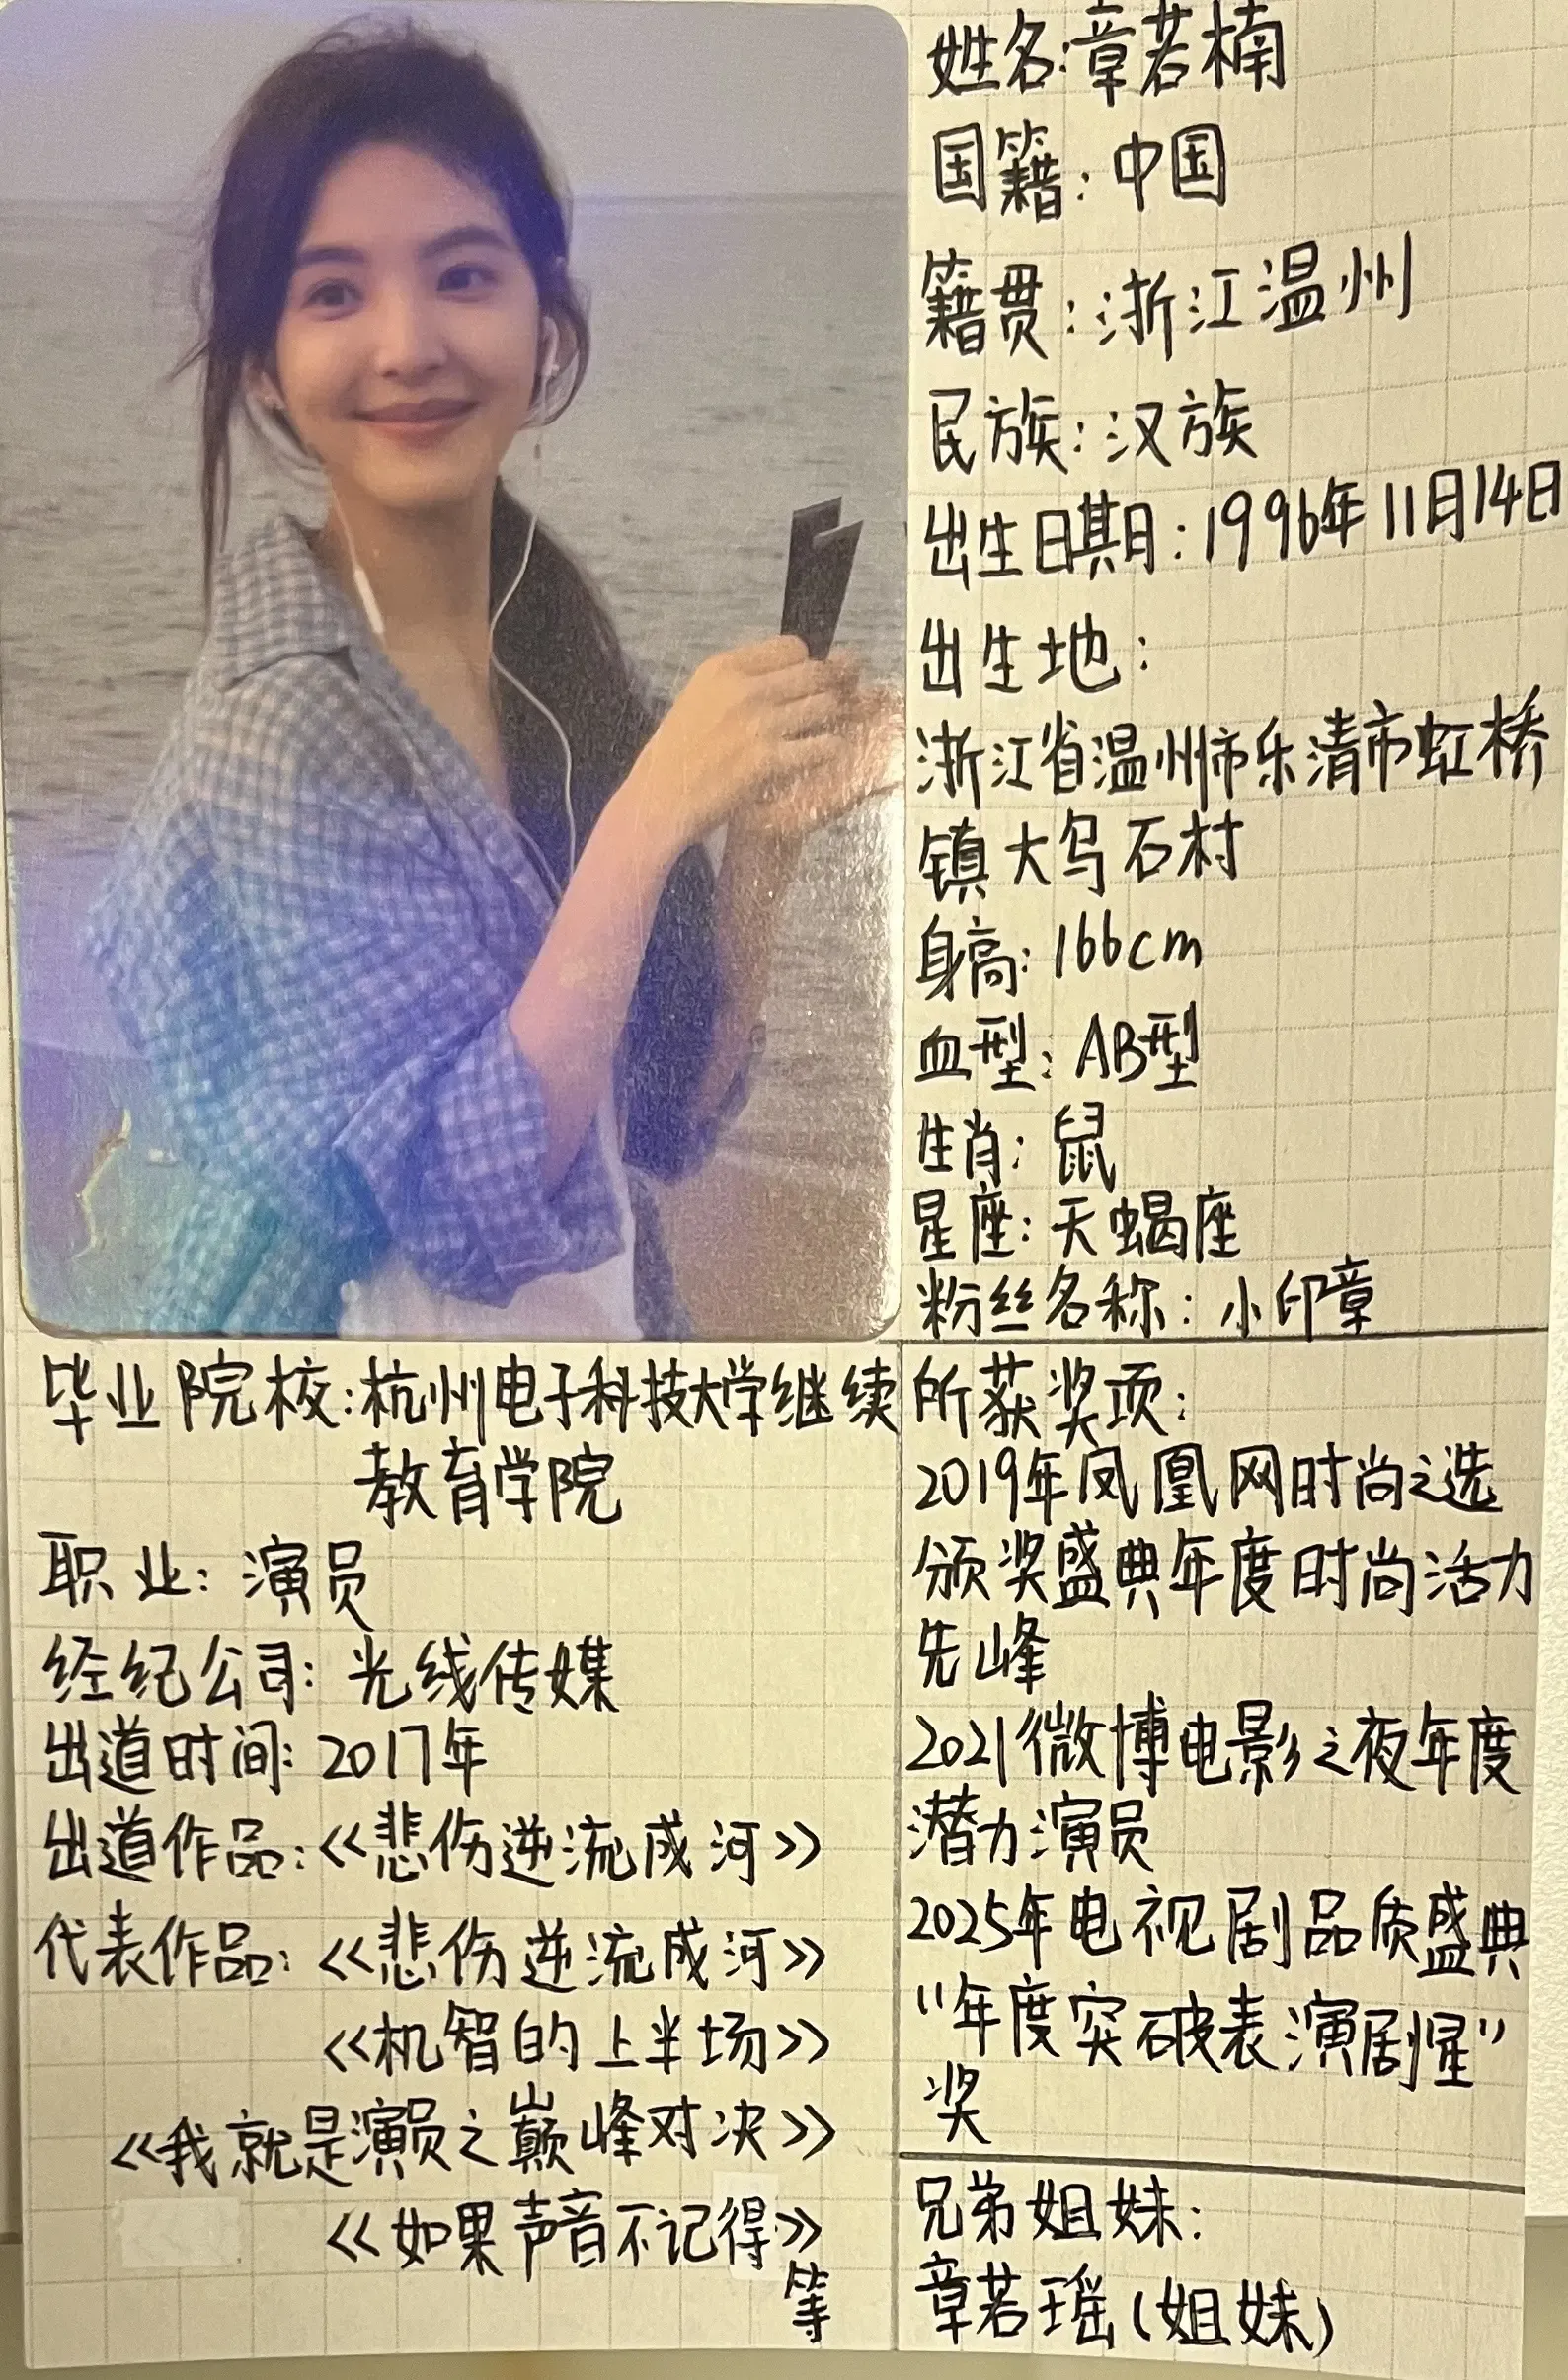 姓名:章若楠
国籍:中国
籍贯:浙江温州
民族:汉族
出生日期:1996年11月14日
出生地:
浙江省温州市乐清市虹桥
镇大乌石村
身高:166cm
血型:AB型
生肖:鼠
星座:天蝎座
粉丝名称:小印章
毕业院校:杭州电子科技大学继续
教育学院
职业:演员
经纪公司:光线传媒
出道时间:2017年
出道作品:《悲伤逆流成河》
代表作品:《悲伤逆流成河》
《机智的上半场》
《我就是演员之巅峰对决》
《如果声音不记得》
等
所获奖项:
2019年凤凰网时尚之选
颁奖盛典年度时尚活力
先峰
2021微博电影之夜年度
潜力演员
2025年电视剧品质盛典
“年度突破表演剧星”
奖
兄弟姐妹:
章若瑶(姐妹)